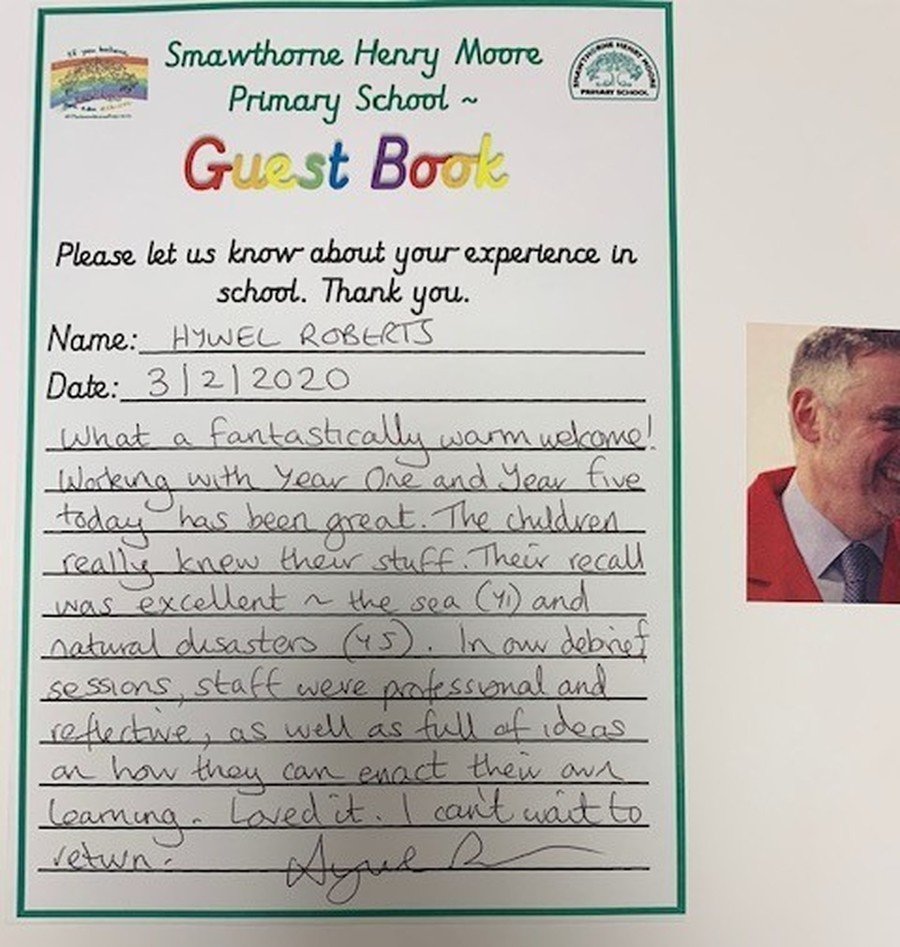 If you believe
SMAWTHORNE HENRY MOORE
PRIMARY SCHOOL
Smawthorne Henry Moore
Primary School ~
Guest Book
Please let us know about your experience in
school. Thank you.
Name: HYWEL ROBERTS
Date: 3/2/2020
What a fantastically warm welcome!
Working with Year One and Year five
today has been great. The children
really knew their stuff. Their recall
was excellent ~ the sea (Y1) and
natural disasters (Y5). In our debrief
sessions, staff were professional and
reflective, as well as full of ideas
on how they can enact their own
learning. Loved it. I can't wait to
return.